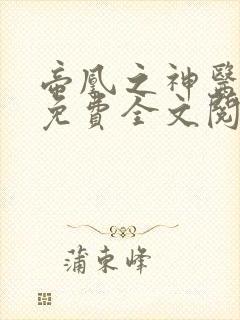 帝凰之神醫
免費全文閱
蒲東峰